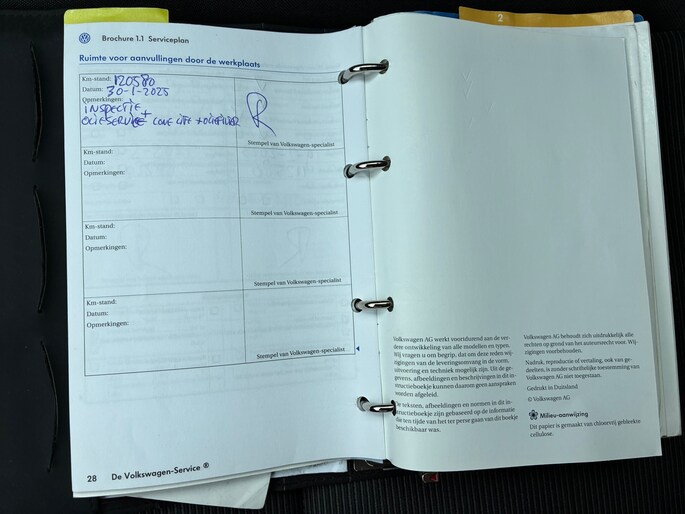 Brochure 1.1 Serviceplan
Ruimte voor aanvullingen door de werkplaats
Km-stand: 120580
Datum: 30-1-2025
Opmerkingen:
INSPECTIE +
OLIESERVICE LONG LIFE + OLIEFILTER
Stempel van Volkswagen-specialist
Km-stand:
Datum:
Opmerkingen:
Stempel van Volkswagen-specialist
Km-stand:
Datum:
Opmerkingen:
Stempel van Volkswagen-specialist
Km-stand:
Datum:
Opmerkingen:
Stempel van Volkswagen-specialist
28 De Volkswagen-Service ®
2
Volkswagen AG werkt voortdurend aan de ver-
dere ontwikkeling van alle modellen en typen.
Wij vragen u om begrip, dat om deze reden wij-
zigingen van de leveringsomvang in de vorm,
uitvoering en techniek mogelijk zijn. Uit de ge-
gevens, afbeeldingen en beschrijvingen in dit in-
structieboekje kunnen daarom geen aanspraken
worden afgeleid.
De teksten, afbeeldingen en normen in dit in-
structieboekje zijn gebaseerd op de informatie
die ten tijde van het ter perse gaan van dit boekje
beschikbaar was.
Volkswagen AG behoudt zich uitdrukkelijk alle
rechten op grond van het auteursrecht voor. Wij-
zigingen voorbehouden.
Nadruk, reproductie of vertaling, ook van ge-
deelten, is zonder schriftelijke toestemming van
Volkswagen AG niet toegestaan.
Gedrukt in Duitsland
© Volkswagen AG
Milieu-aanwijzing
Dit papier is gemaakt van chloorvrij gebleekte
cellulose.